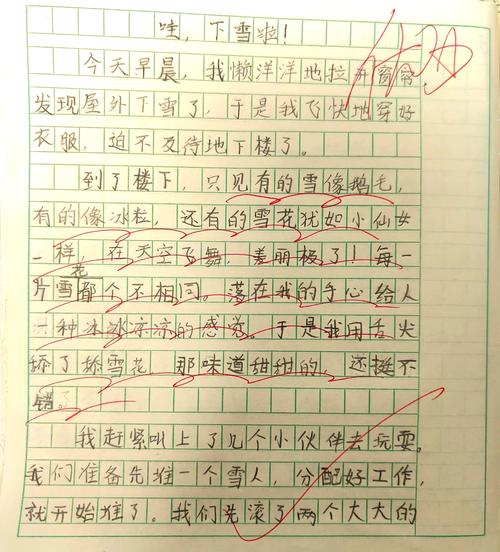 哇，下雪啦！
今天早晨，我懒洋洋地拉开窗帘
发现屋外下雪了，于是我飞快地穿好
衣服，迫不及待地下楼了。
到了楼下，只见有的雪像鹅毛，
有的像冰粒，还有的雪花犹如小仙女
一样，在天空飞舞，美丽极了！每一
片雪花都个不相同。落在我的手心给人
一种冰冰凉凉的感觉。于是我用舌尖
舔了舔雪花，那味道甜甜的，还挺不
错。
我赶紧叫上了几个小伙伴去玩耍。
我们准备先堆一个雪人，分配好工作，
就开始堆了。我们先滚了两个大大的